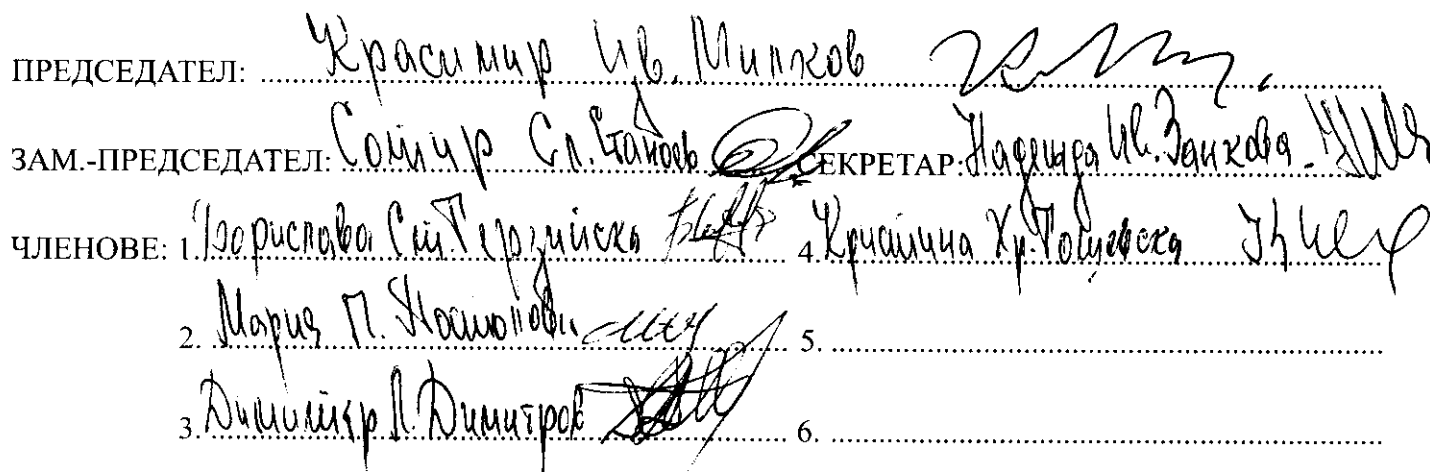 ПРЕДСЕДАТЕЛ: Красимир Ив. Милков
ЗАМ.-ПРЕДСЕДАТЕЛ: Сотир Сл. СЕКРЕТАР: Надежда Ив. Занкова
ЧЛЕНОВЕ: 1. Борислава Ст. Терзийска 4. Кристина Хр. Гошевска
2. Мария П. 5.
3. Димитър Л. Димитров 6.